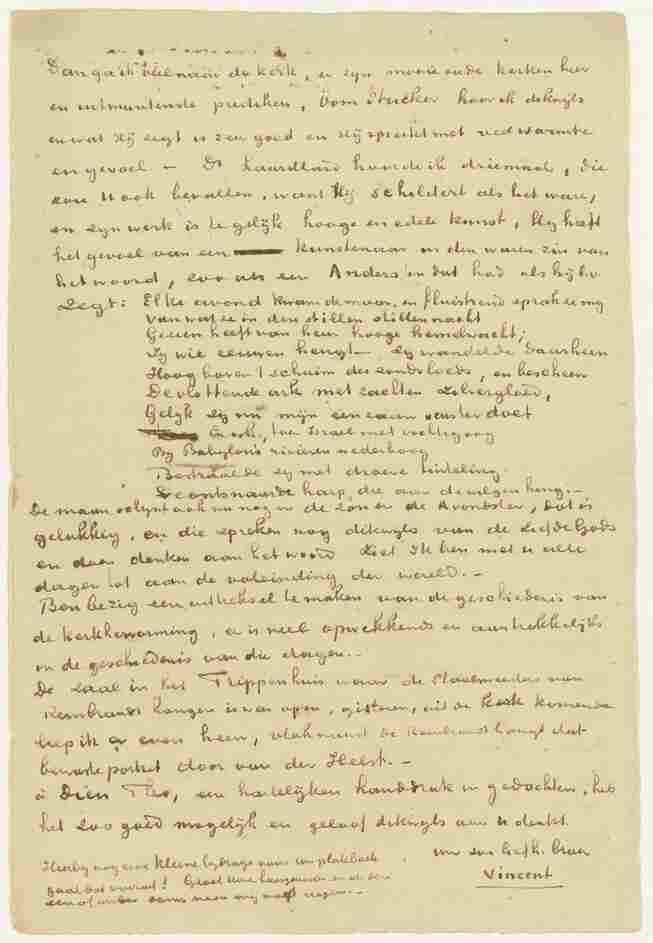 Dan ga ik veel naar de kerk, er zyn mooie oude kerken hier
en uitmuntende predikers, Oom Stricker hoor ik dikwijls
en wat Hij zegt is zeer goed en Hij spreekt met veel warmte
en gevoel — Ds Laurillard hoorde ik driemaal, die
zou U ook bevallen, want Hij schildert als het ware,
en zyn werk is tegelijk hooge en edele kunst, Hy heeft
het gevoel van een kunstenaar in den waren zin van
het woord, zoo als een Andersen dat had als hij bv.
zegt: Elke avond kwam de maan, en fluistrend sprak ze my
van wat ze in den stillen stillen nacht
Gezien heeft van heur hooge hemelwacht;
Zy wie eeuwen heugt — zy wandelde daarheen
Hoog boven 't schuim des zondvloeds, en bescheen
De vlottende ark met zachten zilvergloed,
Gelyk zy nu mijn eenzaam venster doet
En ook, toen Israel met
By Babylons rivieren nederboog
Bestraalde zy met droeve tinteling
De ontsnaarde harp, die aan de wilgen hing. —
De maan schynt ook nu nog en de zon en de Avondster, dat is
gelukkig, en die spreken nog dikwyls van de Liefde Gods
en doen denken aan het woord Ziet Ik ben met u alle
dagen tot aan de voleinding der wereld. —
Ben bezig een uittreksel te maken van de geschiedenis van
de Kerkhervorming, er is veel opwekkends en aantrekkelyks
in de geschiedenis van die dagen. —
De zaal in het Trippenhuis waar de Staalmeesters van
Rembrandt hangen is weer open, gisteren, uit de kerk komende
liep ik er even heen, vlak naast de Rembrandt hangt dat
bewuste portret door van der Helst. —
à Dieu Theo, een hartelijken handdruk in gedachten, heb
het zoo goed mogelijk en geloof dikwyls aan u denkt
uw zoo liefh. broer
Vincent
Hierby nog eene kleine bydrage voor uw plakboek
gaat dat vooruit! Groet
een of ander soms naar my mogt vragen. —